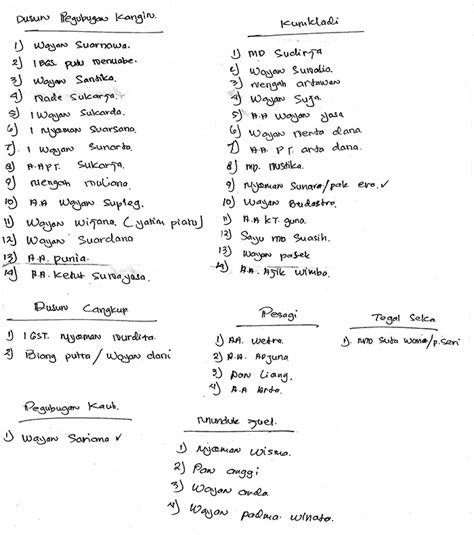 Dusun Pegubugan Kangin.
1) Wayan Suarnawa.
2) IBGS putu menuabe.
3) Wayan Santika.
4) Made Sukarja.
5) I Wayan Sukarda.
6) I Nyoman Suarsana.
7) I Wayan Sunarta.
8) A.A PT. Sukarja.
9) Nengah muliana.
10) A.A Wayan Supleg.
11) Wayan Wijana. (yatim piatu)
12) Wayan Suardana
13) A.A. punia.
14) A.A. Ketut Surayasa.
Kunikladi
1) MD Sudirja
2) Wayan Sunolia.
3) Nengah artawan
4) Wayan Suja.
5) A.A Wayan yasa
6) Wayan merta dana
7) A.A. PT. arta dana.
8) MD. mustika.
9) Nyoman Sunara/pak evo. ✓
10) Wayan Budastra.
11) A.A KT. guna.
12) Sayu MD Suasih.
13) Wayan pasek
14) A.A. Ajik wimba.
Dusun Cangkup
1) I GST. Nyoman murdita.
2) Biang putra / Wayan dani
Pesagi
1) AA. wetra.
2) A.A. Arjuna
3) pan Liang.
4) A.A Arta.
Tegal Selca
1). MD Suta wana/p.seri
Pegubugan Kaut.
1) Wayan Sariana ✓
Munduk juet.
1) Nyoman wisma.
2) Pan anggi
3) Wayan anda
4) Wayan padma winata.